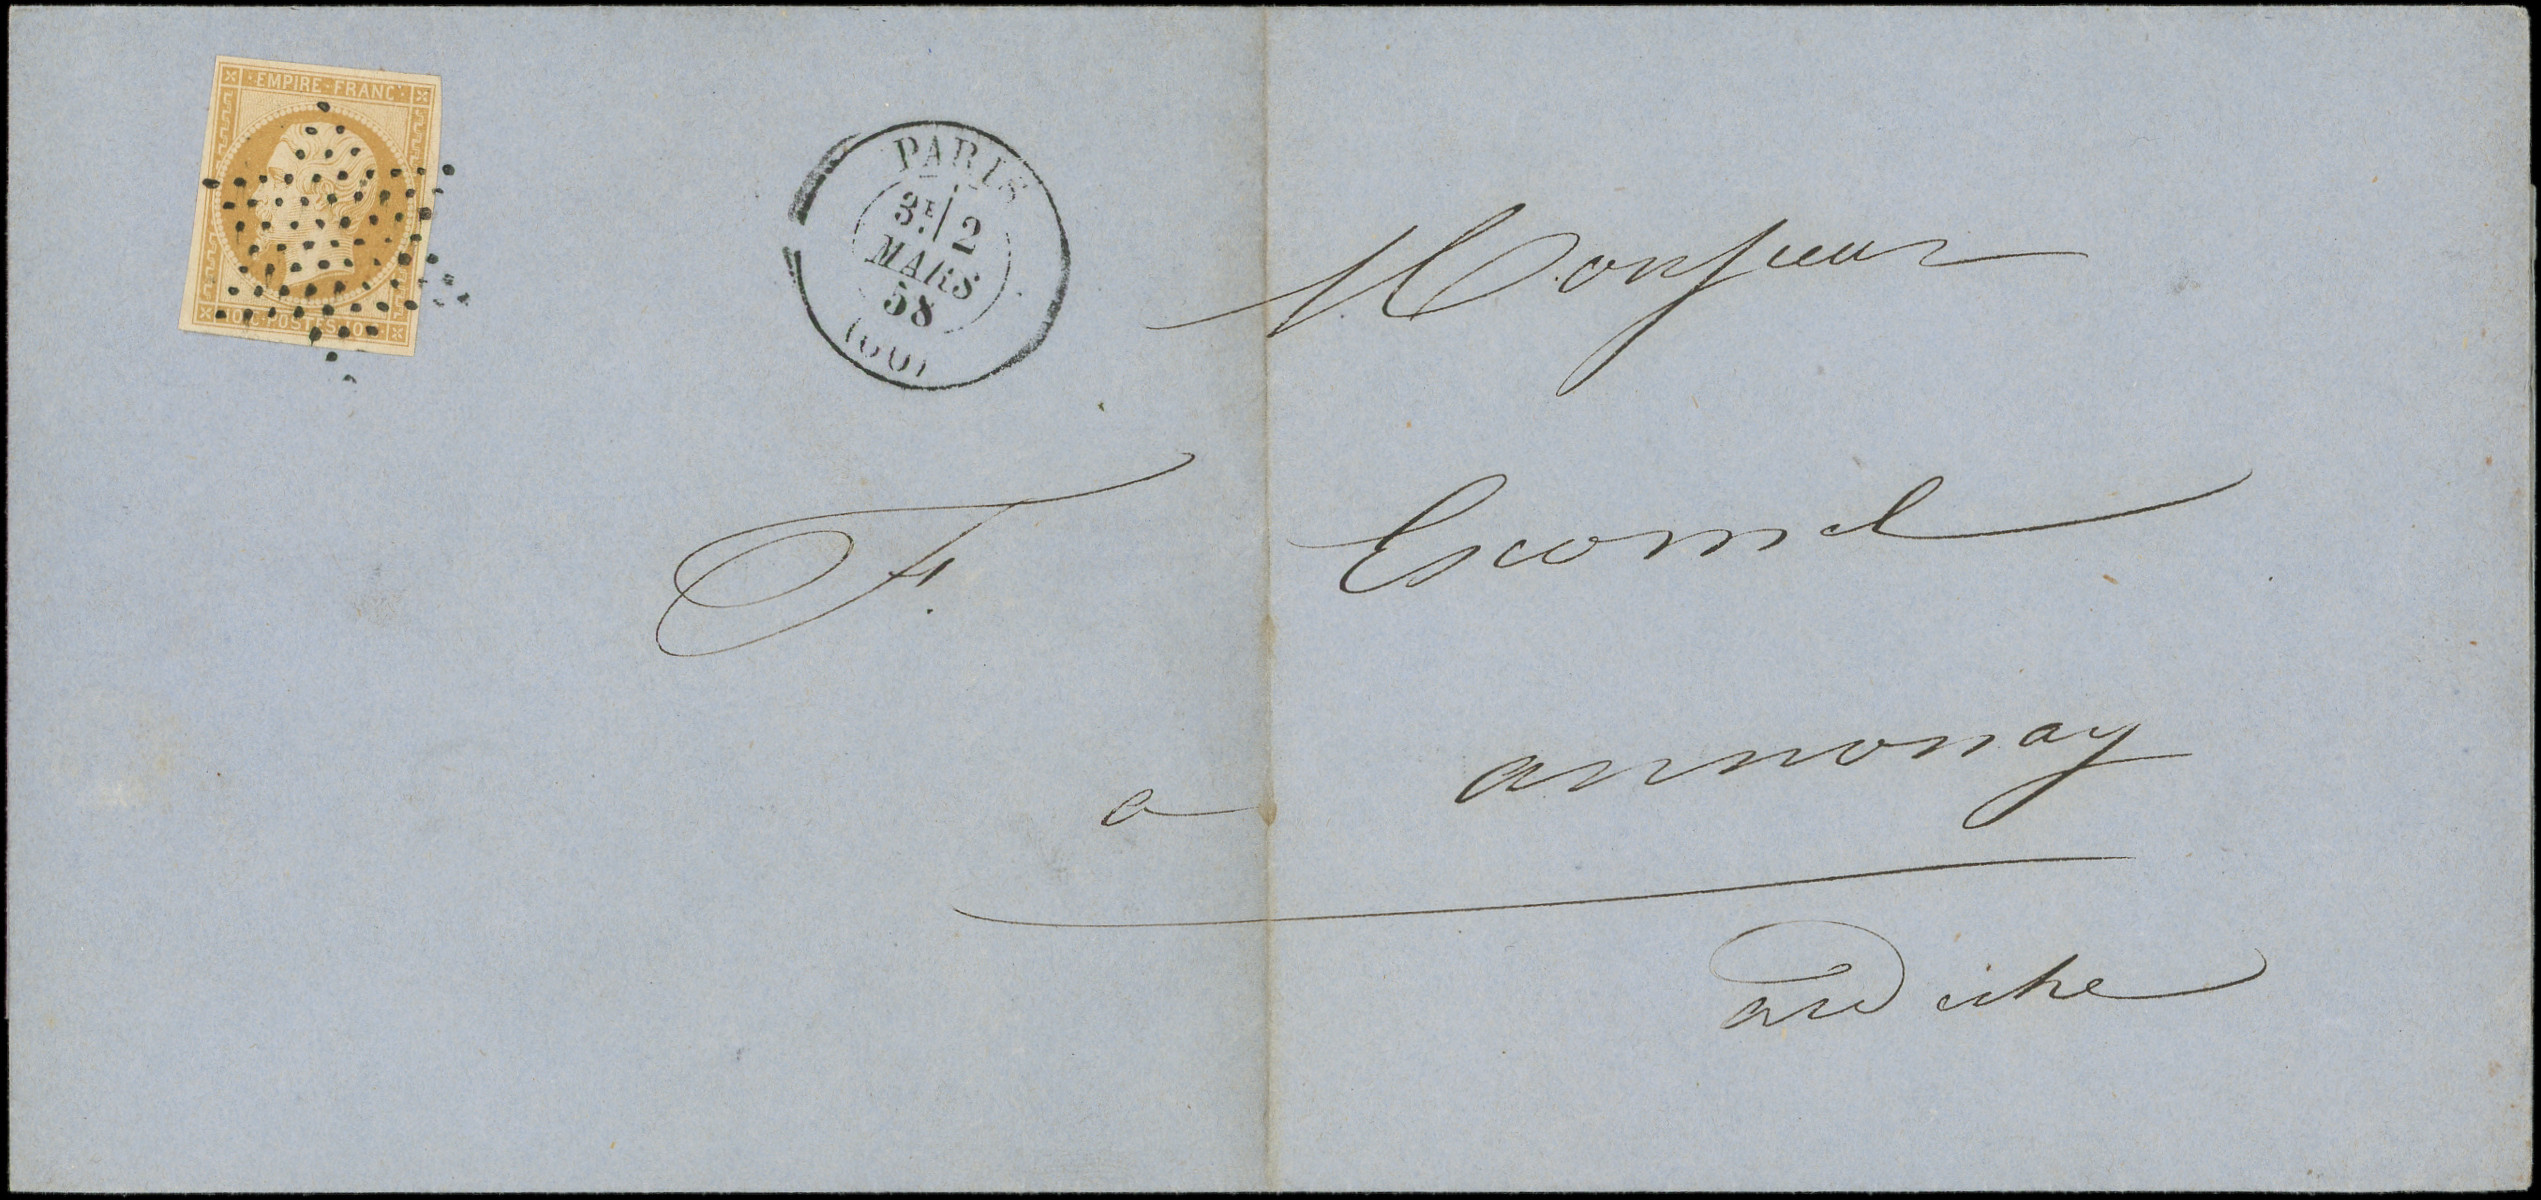 EMPIRE · FRANC ·
10 C · POSTES · 10 C
PARIS
3E 2
MARS
58
(60)
Monsieur
F. Escomel
a annonay
ardeche